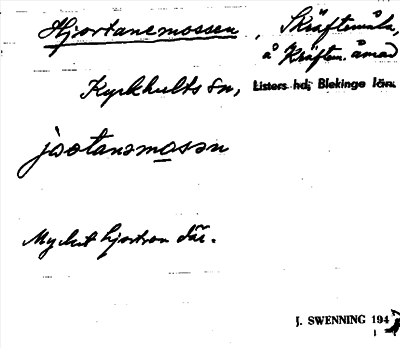 Hjortanemossen, Skräftemåla,
å Kräftem. åmad
Kyrkhults sn, Listers hd, Blekinge län.
jɷtanəmosən
Mycket hjortron där.
J. SWENNING 194